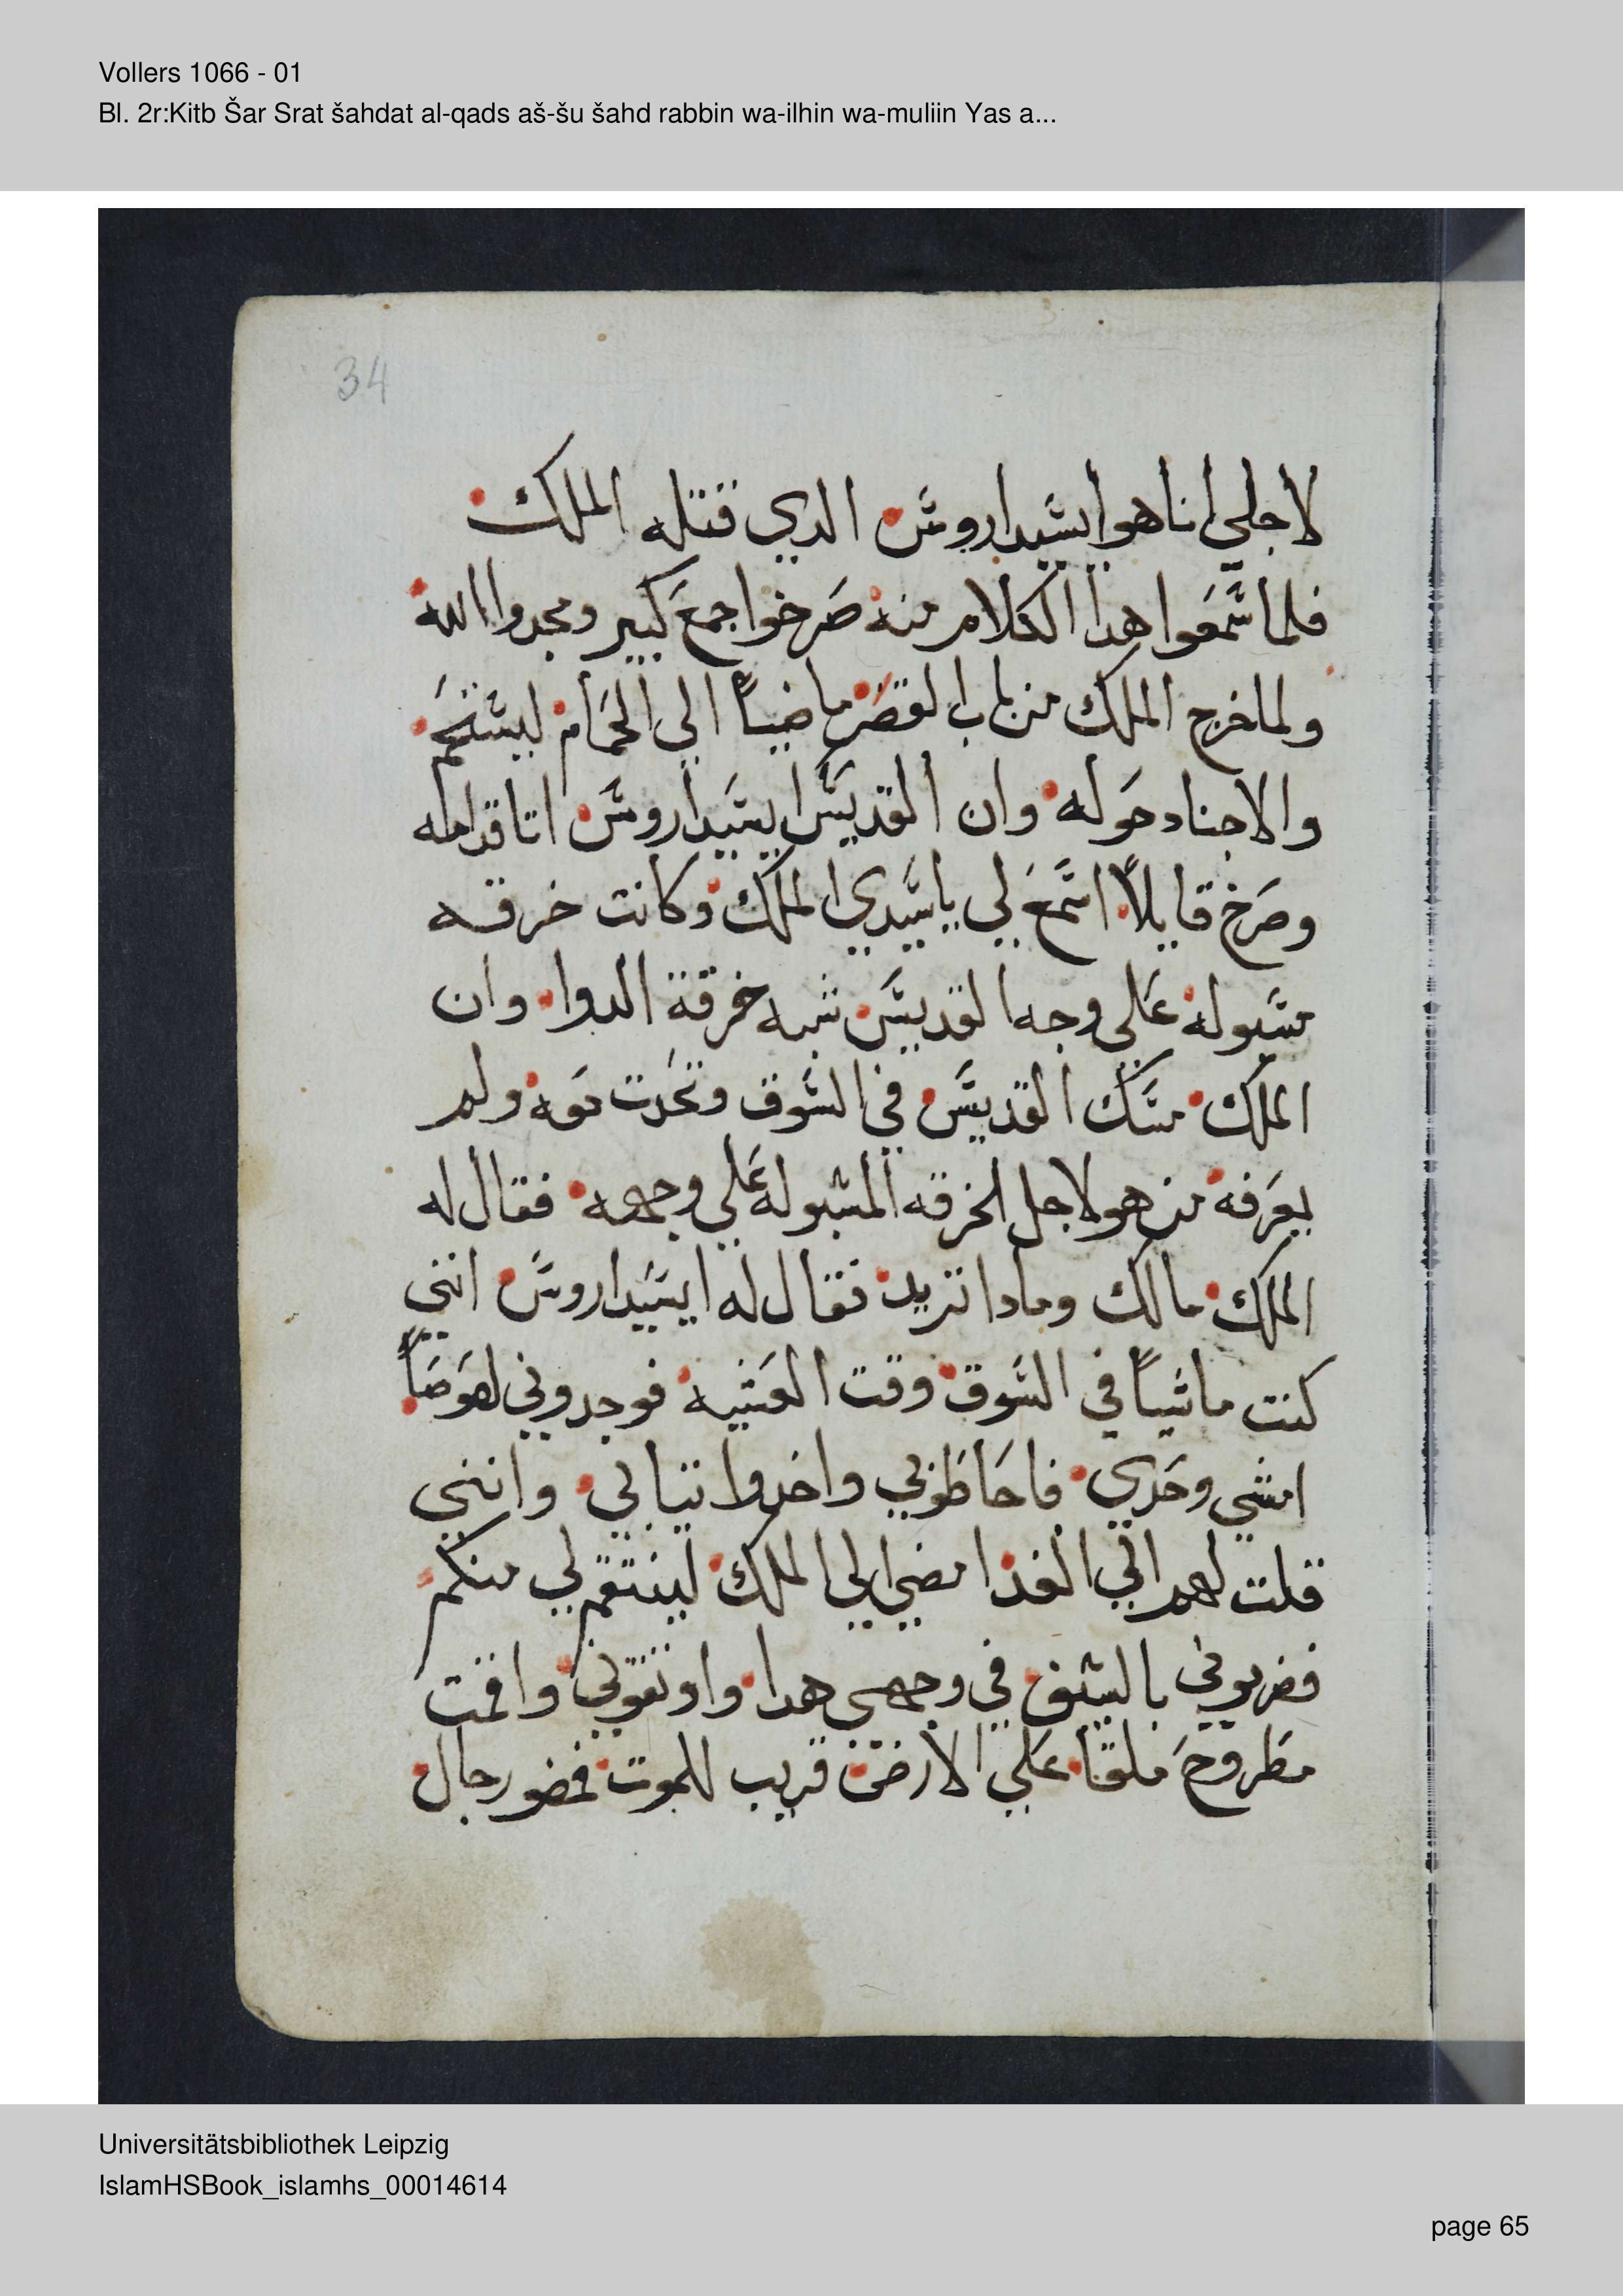 Vollers 1066 - 01
Bl. 2r:Kitb Šar Srat šahdat al-qads aš-šu šahd rabbin wa-ilhin wa-muliin Yas a...
34
لاجلي انا هو ايسيداروس الدي قتله الملك
فلما سمعوا هدا الكلام منه صرخوا جمع كبير ومجدوا الله
ولما خرج الملك من باب القصر ماضياً الي الحمام ليستحم
والاجناد حوله وان القديس ايسيداروس اتا قدامه
وصرخ قايلاً اسمع لي يا سيدي الملك وكانت خرقه
مسبوله علي وجه القديس شبه خرقة الدوا وان
الملك مسك القديس في السوق وتحدت معه ولم
يعرفه من هو لاجل الخرقه المسبوله علي وجهه فقال له
الملك مالك ومادا تريد فقال له ايسيداروس انني
كنت ماشياً في السوق وقت العشيه فوجدوني لصوصاً
امشي وحدي فاحاطوني واخدوا تيابي وانني
قلت لهم اني الغد امضي الي الملك لينتقم لي منكم
فضربوني بالسيف في وجهي هدا واوتقوني واقمت
مطروح ملقا علي الارض قريب للموت فحضر رجال
Universitätsbibliothek Leipzig
IslamHSBook_islamhs_00014614
page 65